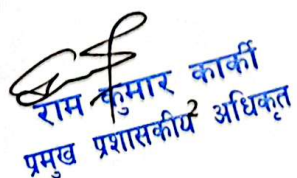 राम कुमार कार्की
प्रमुख प्रशासकीय अधिकृत
2